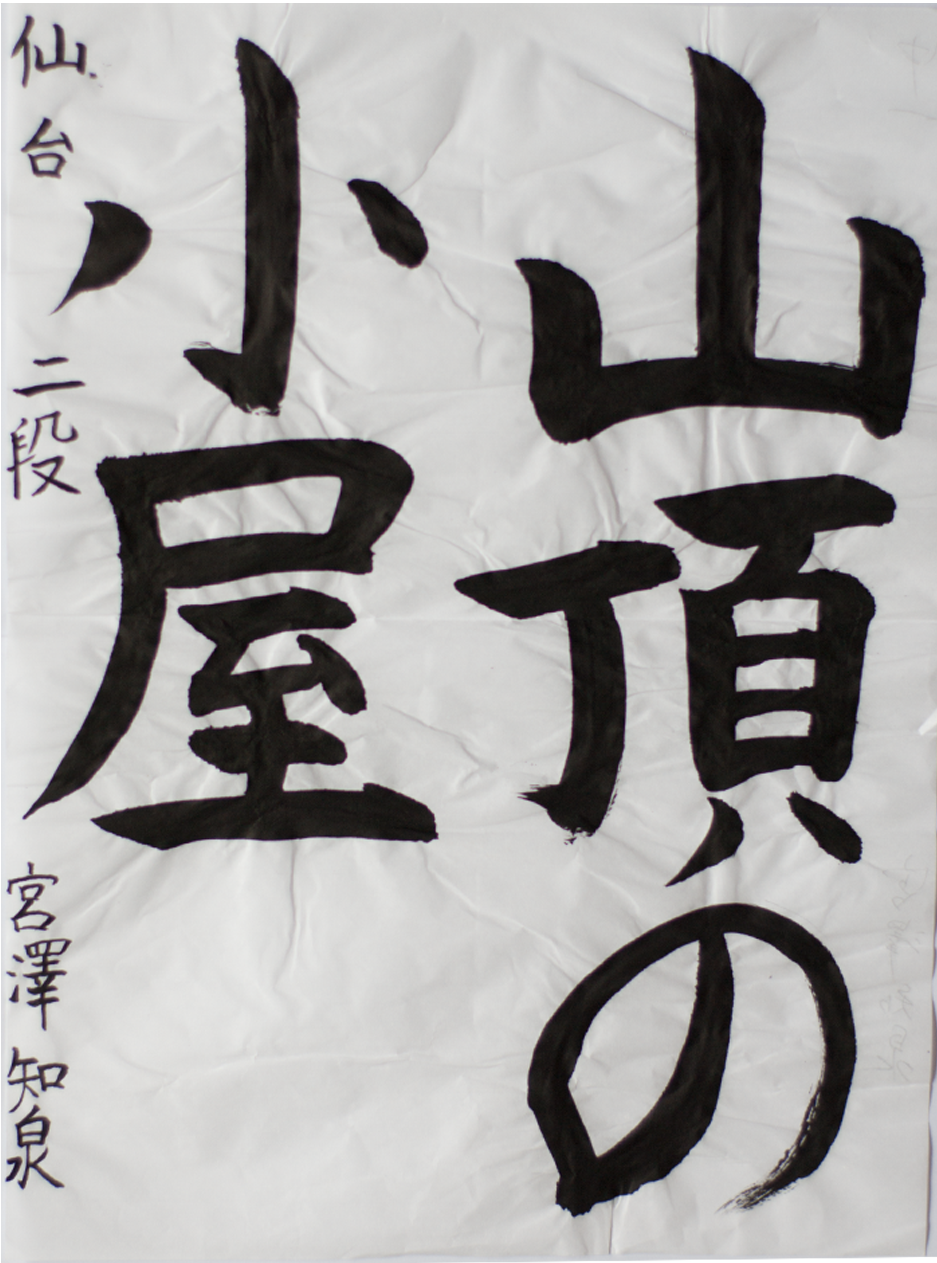 山頂の
小屋
仙台 二段 宮澤 知泉